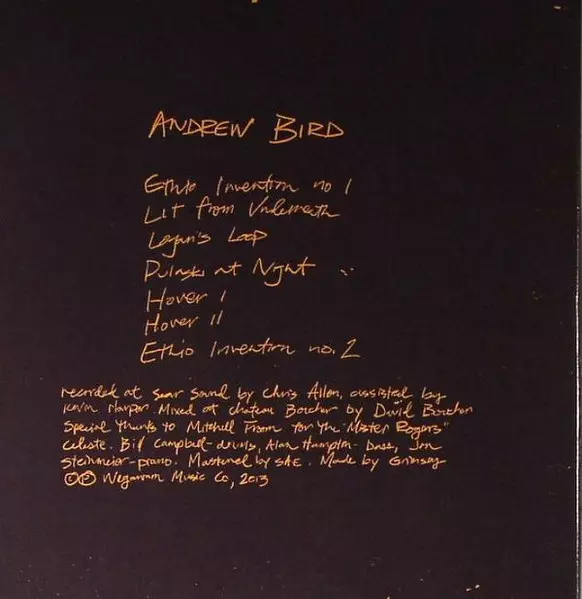 ANDREW BIRD
Ethio Invention no 1
Lit from Underneath
Logan's Loop
Pulaski at Night
Hover I
Hover II
Ethio Invention no. 2
recorded at Sear Sound by Chris Allen, assisted by
Kevin Harper Mixed at Chateau by David Boucher
Special thanks to Mitchell Froom for the "Mister Rogers"
celeste. Bill Campbell-drums, Alan Hampton- Bass, Jon
Steinmeier-piano. Mastered by SAE. Made by Grimsey
©℗ Wegawam Music Co, 2013